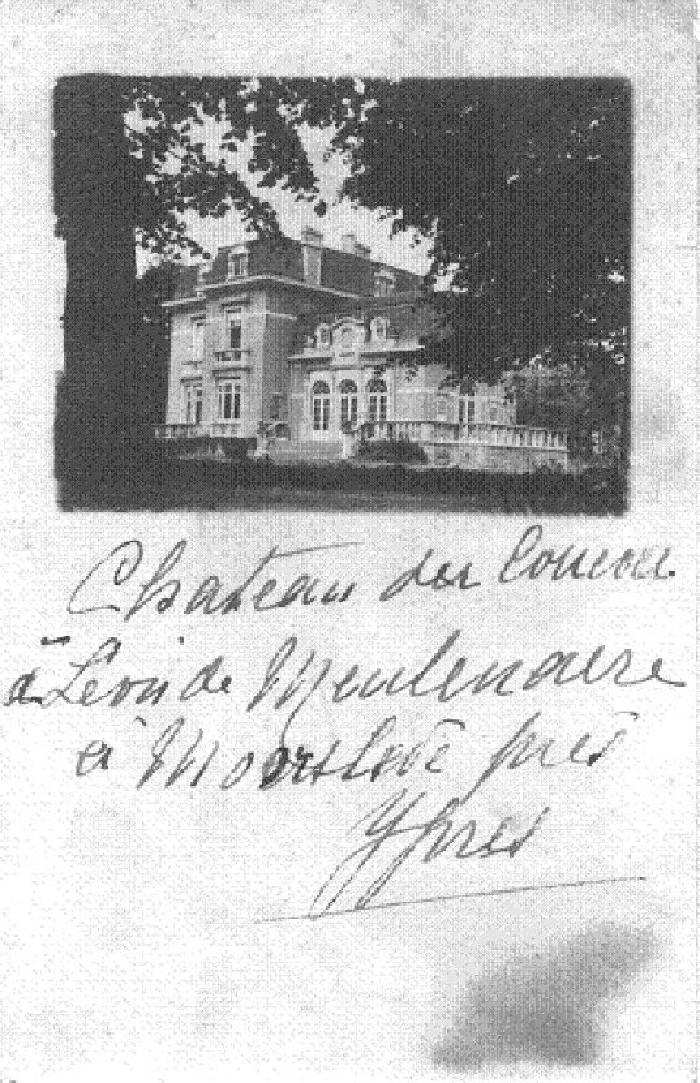 Chateau du Coucou
à Léon de Meulenaere
à Moorslede près
Ypres